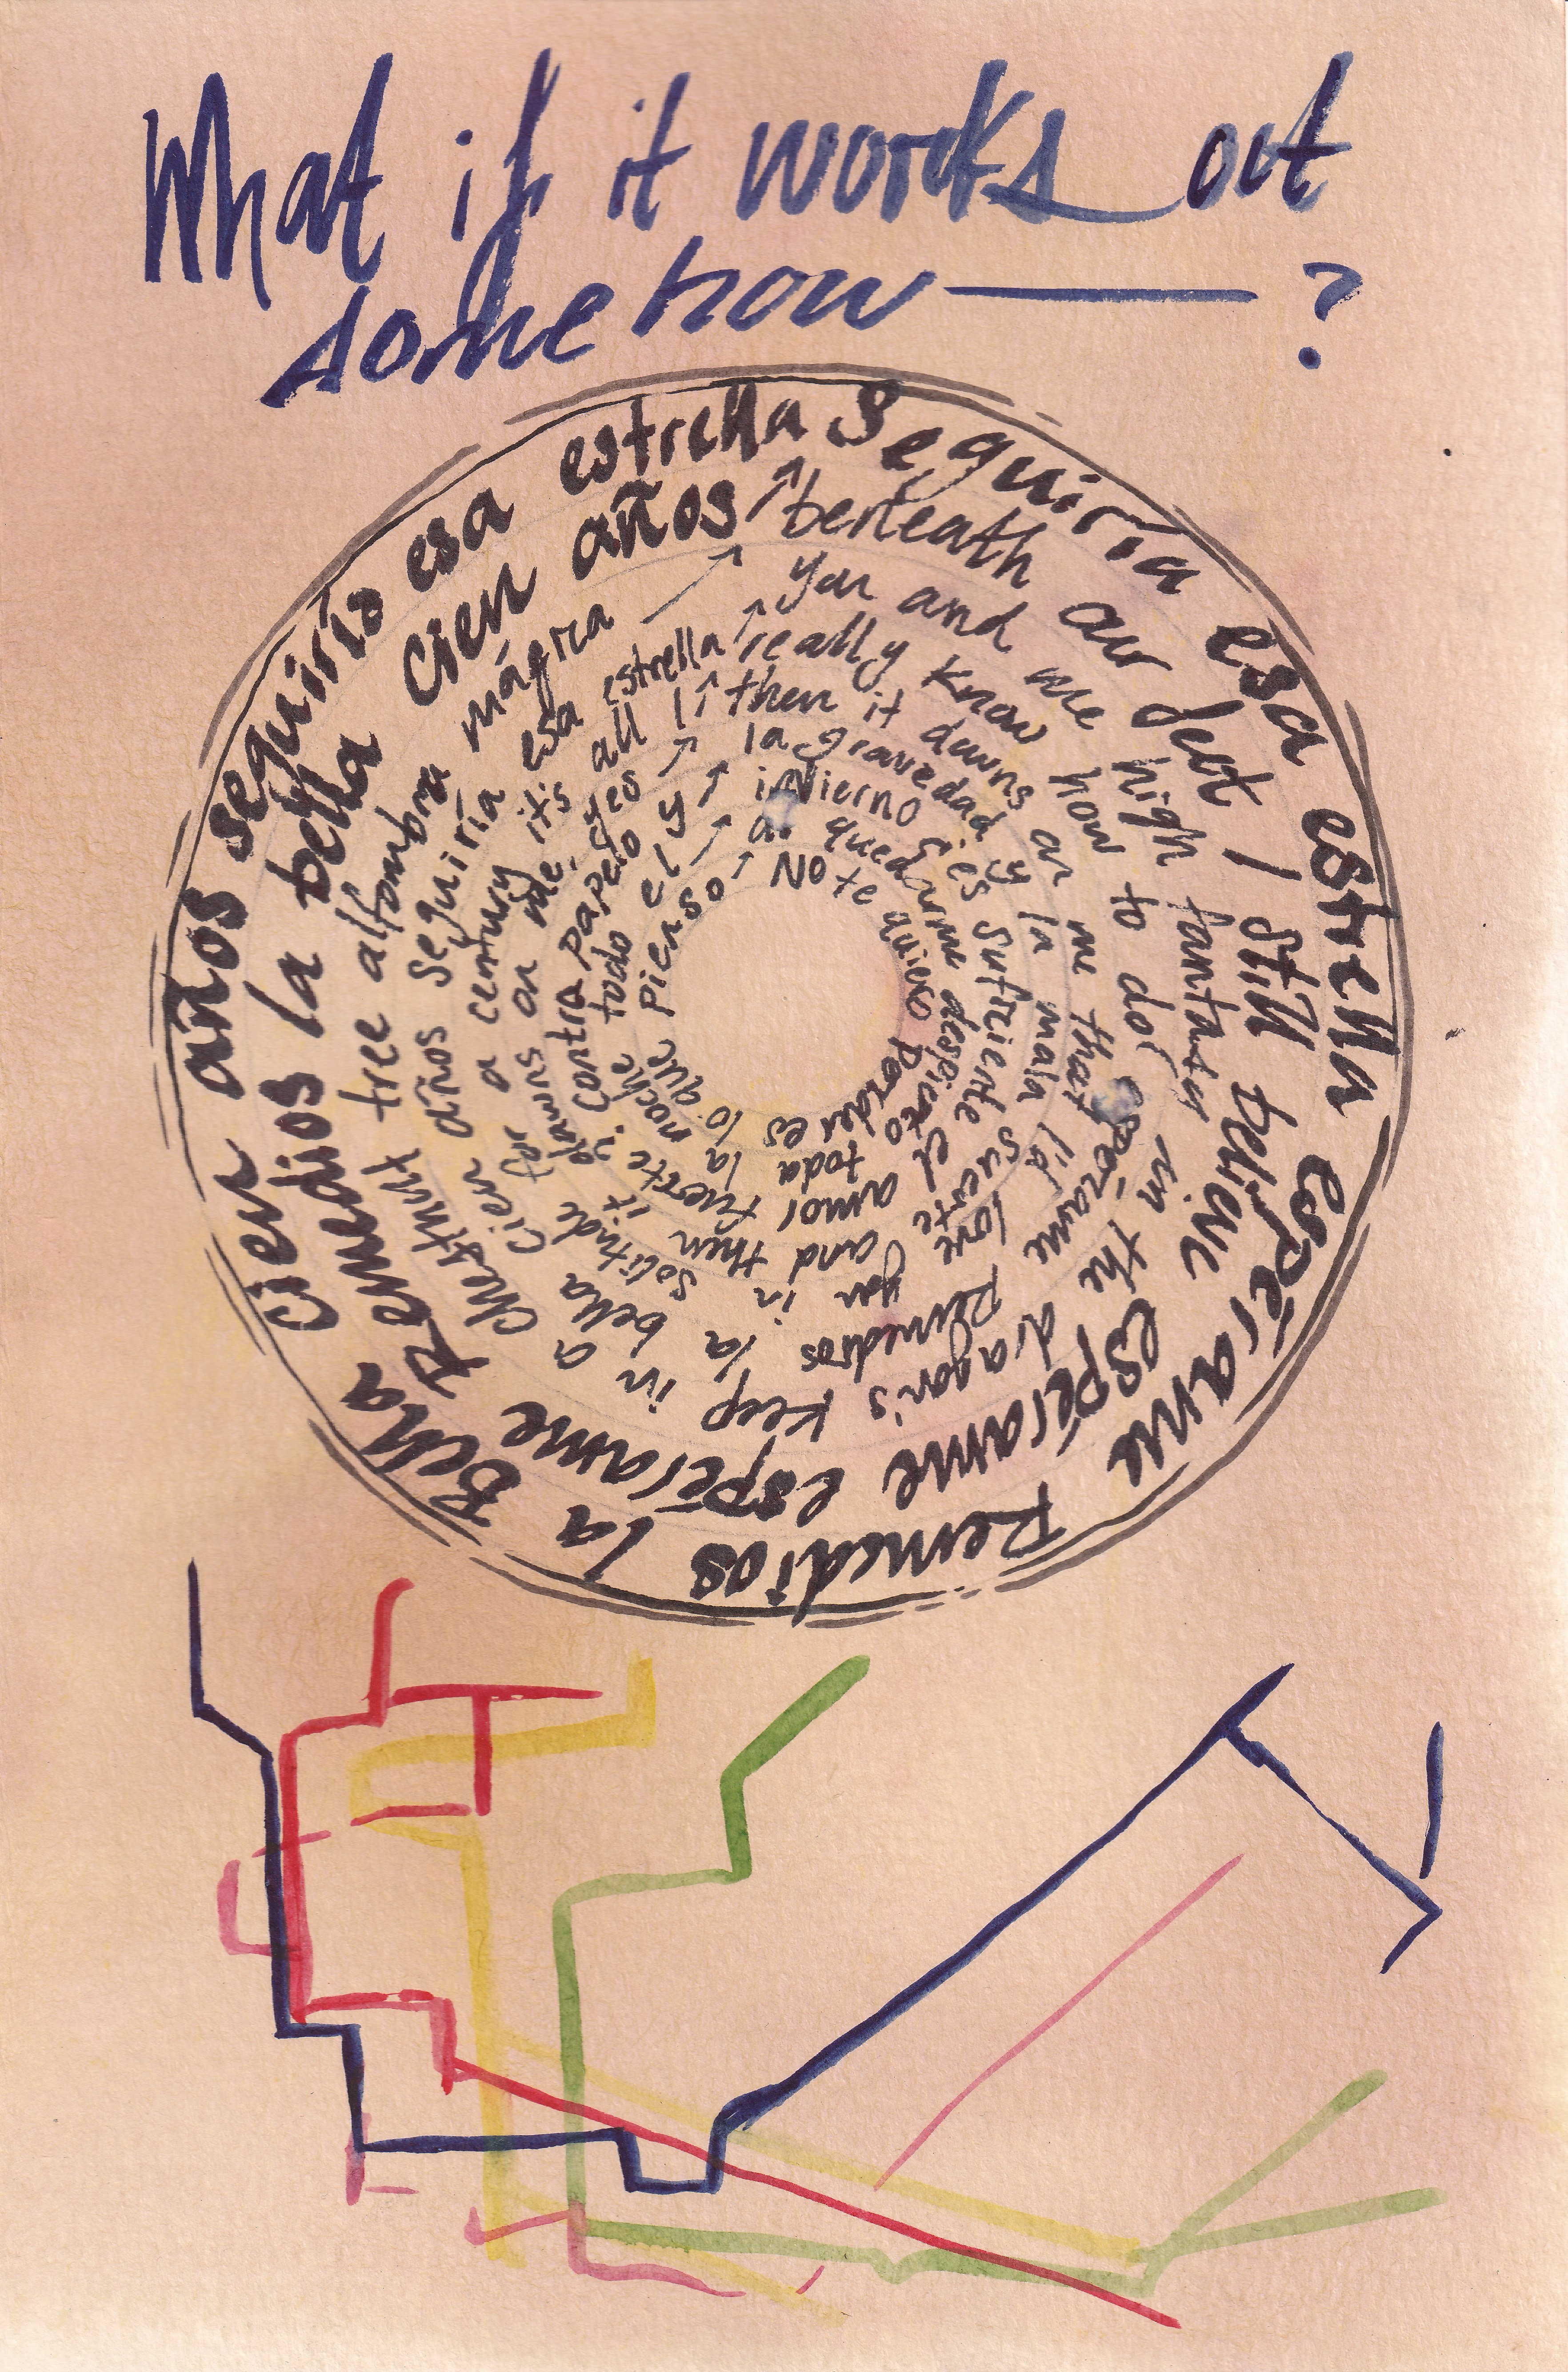 What if it works out
somehow — ?
No te quiero perder es lo que pienso ↗
al quedarme despierto toda la noche todo el ↗
invierno ¿es suficiente el amor fuerte contra papeleo y ↗
la gravedad y la mala suerte? and then it dawns on me, yes ↗
then it dawns on me that I'd love you in a solitude for a century it's all I ↗
really know how to do! espérame Remedios la bella cien años seguiría esa estrella ↗
you and me high fantasy in the dragon's keep in a chestnut tree alfombra mágica ↗
beneath our feet I still believe espérame espérame Remedios la bella cien años ↗
Seguiría esa estrella espérame Remedios la Bella cien años seguirís esa estrella